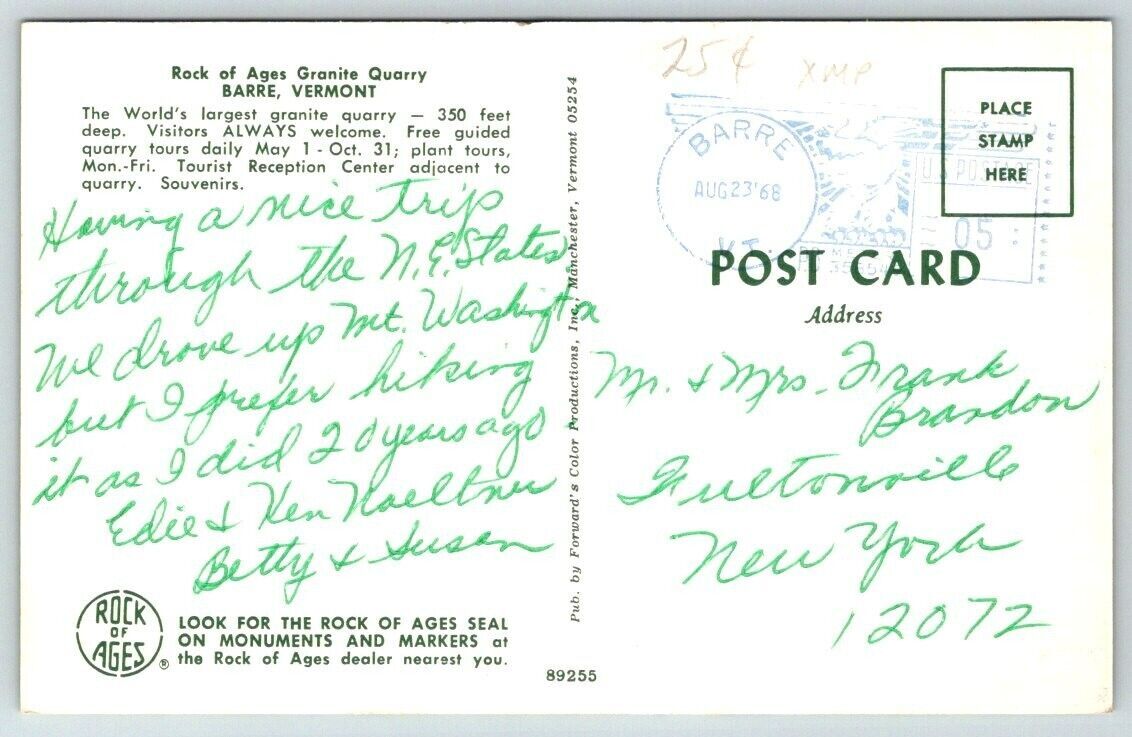 Rock of Ages Granite Quarry
BARRE, VERMONT
The World's largest granite quarry — 350 feet
deep. Visitors ALWAYS welcome. Free guided
quarry tours daily May 1 - Oct. 31; plant tours,
Mon.-Fri. Tourist Reception Center adjacent to
quarry. Souvenirs.
Having a nice trip
through the N.E. States
We drove up Mt. Washington
but I prefer hiking
it as I did 20 years ago -
Edie & Ken Noeltner
Betty & Susan
ROCK
OF
AGES
®
LOOK FOR THE ROCK OF AGES SEAL
ON MONUMENTS AND MARKERS at
the Rock of Ages dealer nearest you.
Pub. by Forward's Color Productions, Inc., Manchester, Vermont 05254
89255
25¢ XMP
BARRE
AUG23'68
VT.
U.S. POSTAGE
05
PLACE
STAMP
HERE
POST CARD
Address
Mr. & Mrs. Frank
Brandon
Fultonville
New York
12072